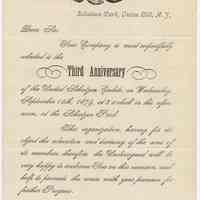 Schützen Park, Union Hill, N. J.
Dear Sir:
Your Company is most respectfully
solicited to the
Third Anniversary
of the United Schützen Corps, on Wednesday,
September 15th, 1879, at 2 o'clock in the after-
noon, at the Schützen Park.
This organization, having for its
object the education and training of the sons of
its members therefor, the Undersigned will be
very happy to welcome you on this occasion, and
help to promote the union with your presence for
further Progress.